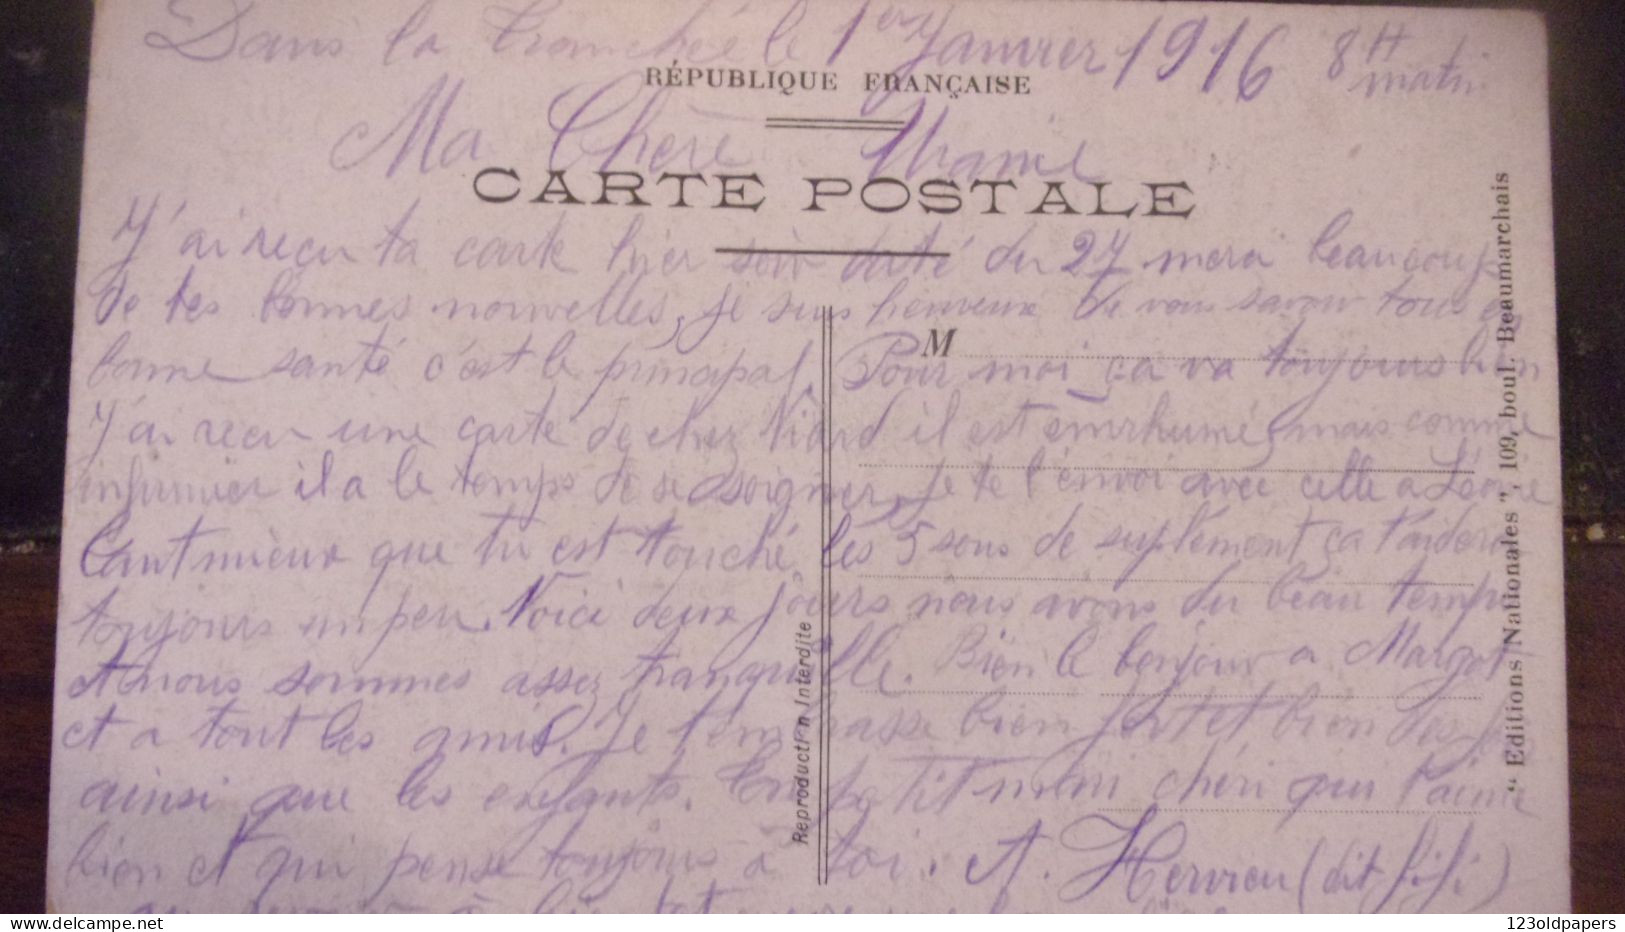 Dans la tranchée le 1er Janvier 1916 8H matin
RÉPUBLIQUE FRANÇAISE
Ma Chère Uranie
CARTE POSTALE
J'ai reçu ta carte hier soir daté du 27 merci beaucoup
de tes bonnes nouvelles, je suis heureux de vous savoir tous en
bonne santé c'est le principal. Pour moi ça va toujours bien
M
J'ai reçu une carte de chez Viard il est enrhumé, mais comme
infirmier il a le temps de se soigner, je te l'envoi avec celle a Léonie
Tant mieux que tu est touché les 5 sous de suplément ça t'aidera
toujours un peu. Voici deux jours nous avons du beau temps
et nous sommes assez tranquille. Bien le bonjour a Margot
et a tout les amis. Je t'embrasse bien fort et bien des fois
ainsi que les enfants. Ton petit mimi cheri qui t'aime
bien et qui pense toujours à toi. A. Hervieu (dit fifi)
au revoir à bientot
Reproduction Interdite
“ Editions Nationales ”, 109, boul. Beaumarchais
123oldpapers